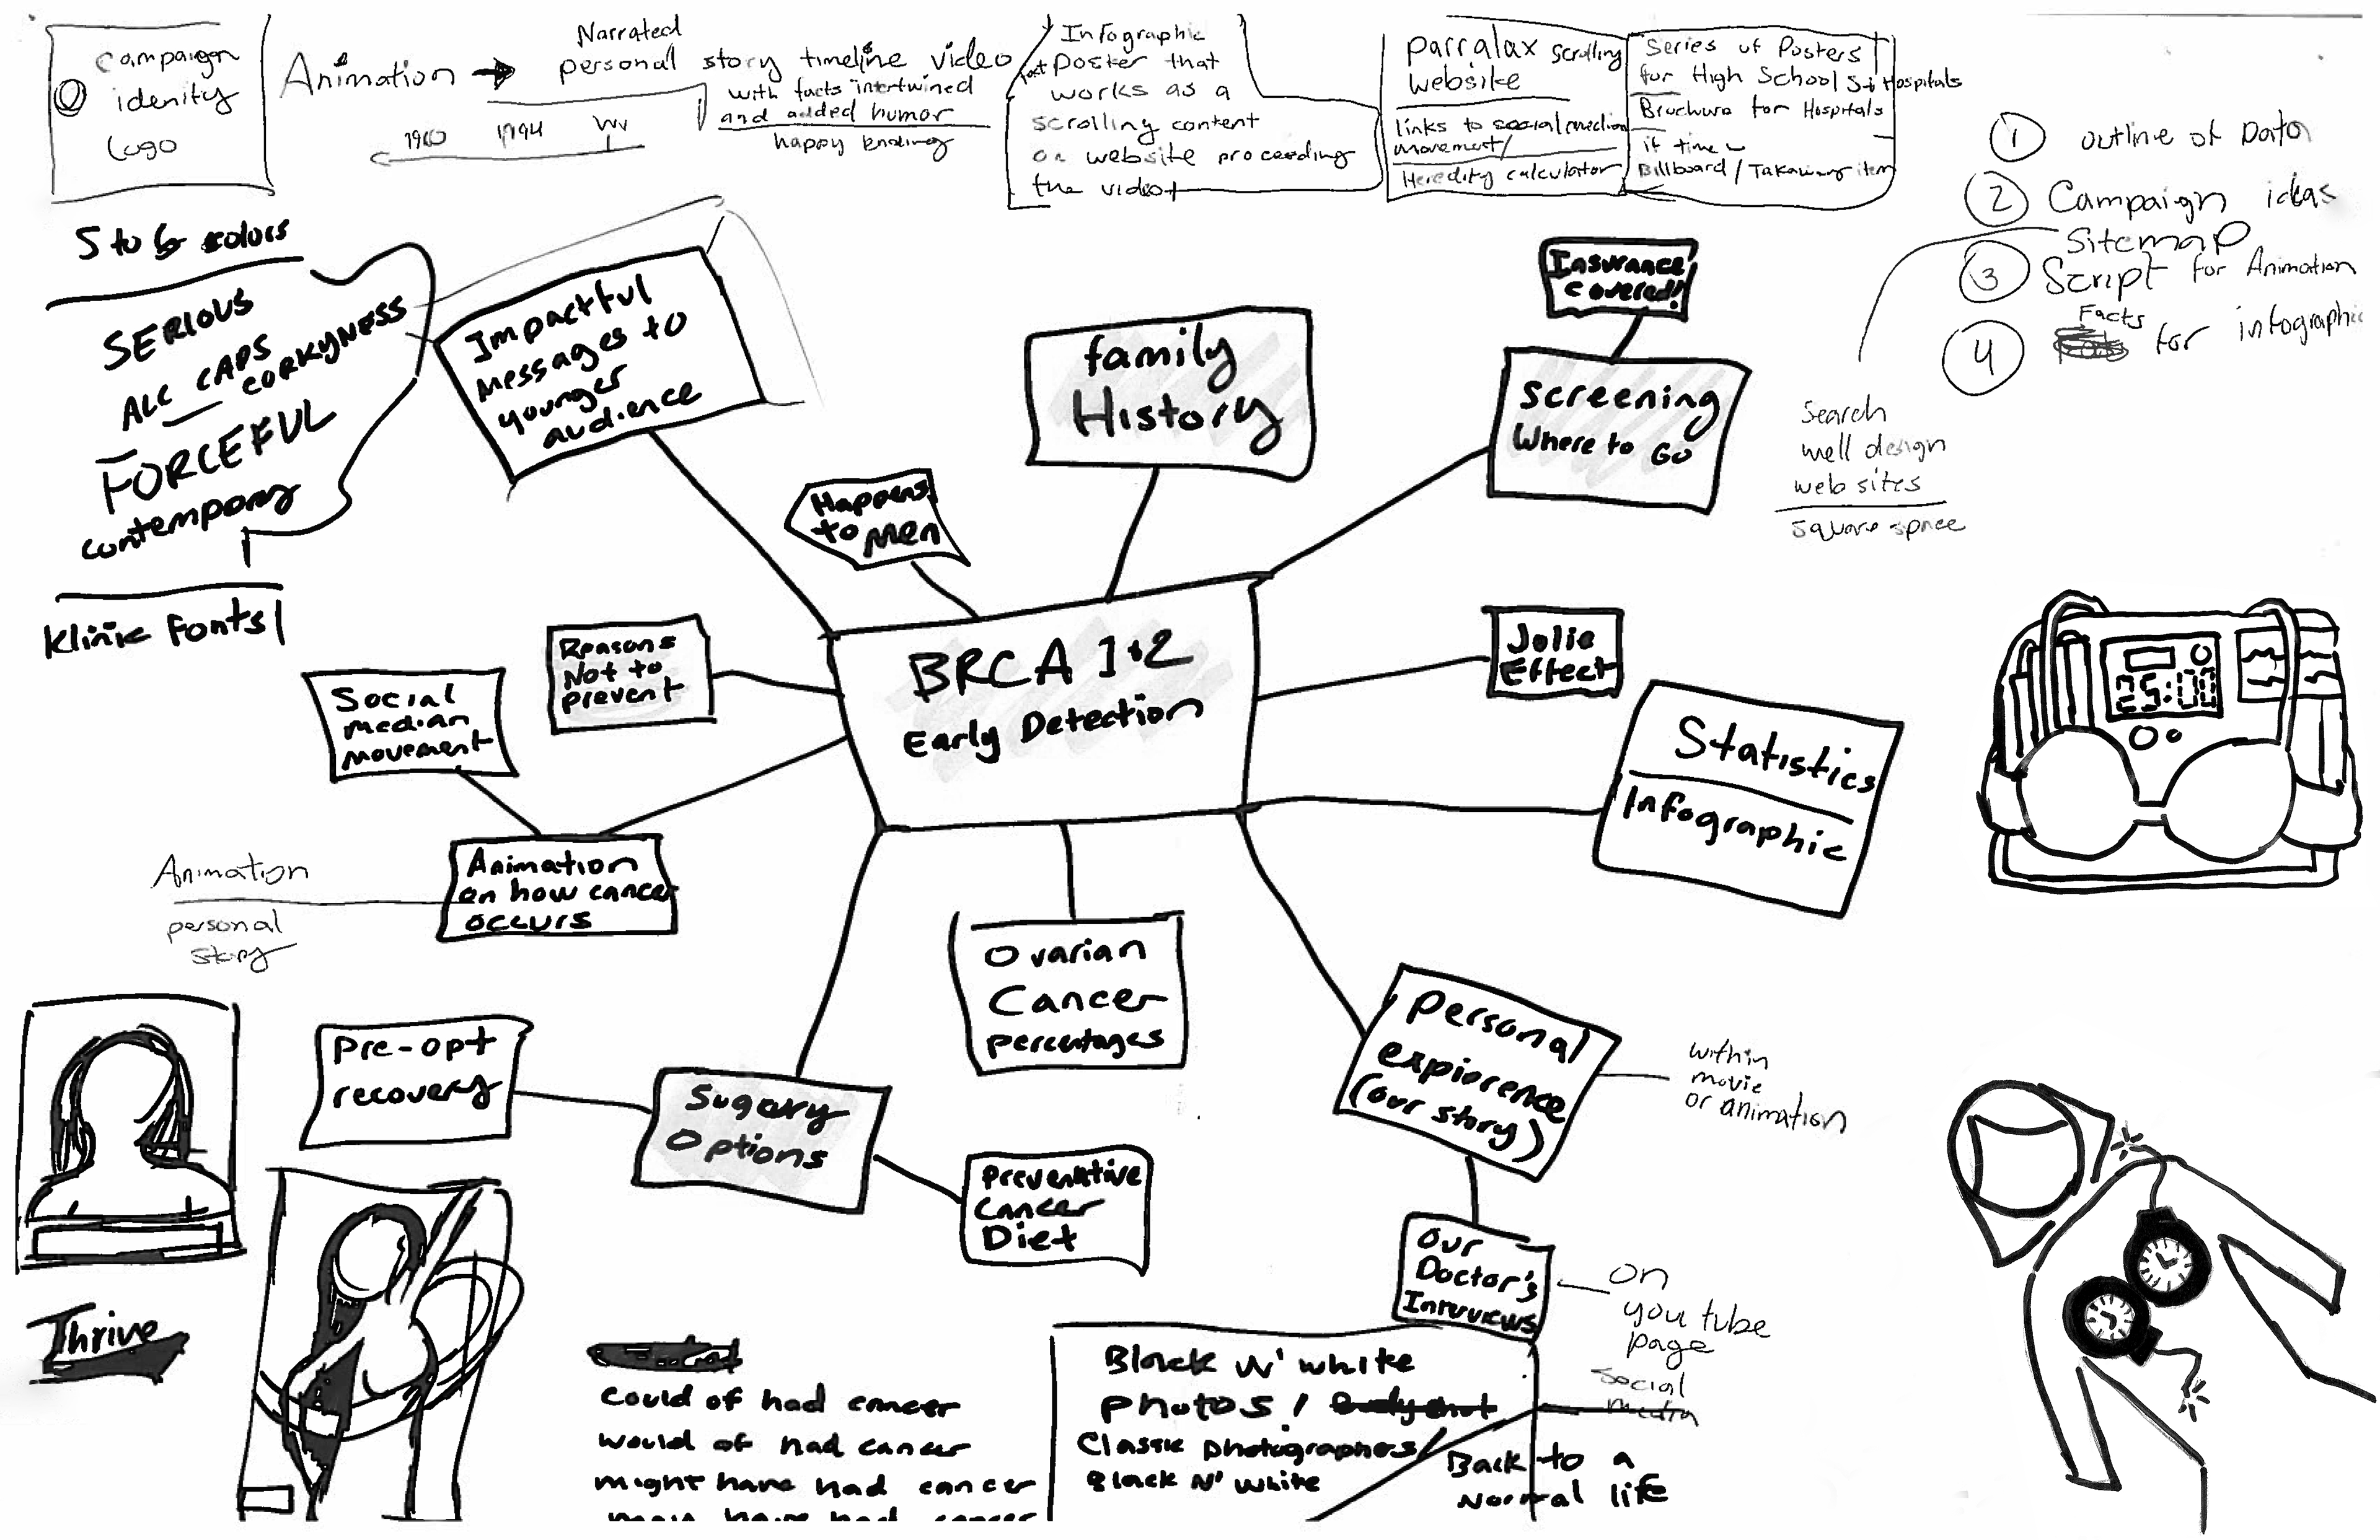 campaign
idenity
Logo
Animation →
Narrated
personal story timeline video
with facts intertwined
and added humor
happy Ending
1960 1994
Infographic
poster that
works as a
scrolling content
on website proceeding
the video
parralax scrolling
website
links to social median
movement/
Heredity calculator
Series of Posters
for High School St Hospitals
Brochure for Hospitals
if time
Billboard / Takaway item
1 outline of Data
2 Campaign ideas
Sitemap
3 Script for Animation
Facts
4 for infographic
Search
well design
web sites
Square space
5 to 6 colors
SERIOUS
ALL CAPS
CORKYNESS
FORCEFUL
contempory
Klinic Fonts
Impactful
messages to
younger
audience
family
History
Insurance
covered!
Screening
Where to Go
Happens
to men
Reasons
Not to
prevent
BRCA 1+2
Early Detection
Jolie
Effect
Statistics
Infographic
25:00
Social
median
movement
Animation
on how cancer
occurs
Animation
personal
story
Ovarian
Cancer
percentages
personal
expiorence
(our story)
within
movie
or animation
Pre-opt
recovery
Sugary
Options
Preventative
Cancer
Diet
Our
Doctor's
Intrviews
on
you tube
page
Social
media
Thrive
could of had cancer
would of had cancer
might have had cancer
may have had cancer
Black N' white
photos!
Classic photographers/
Black N' White
Back to a
Normal life